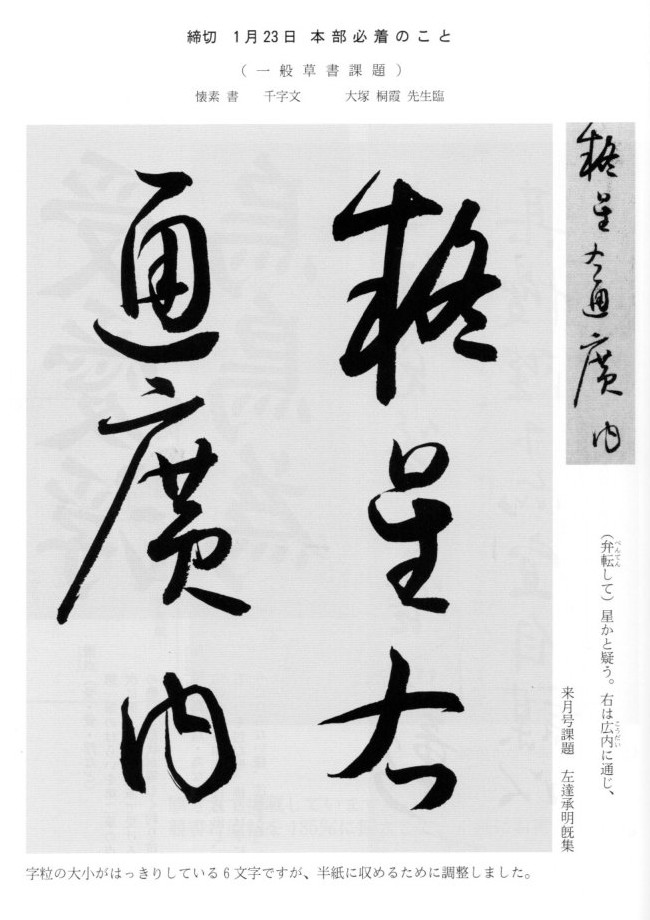 締切　1月23日 本部必着のこと
（一般草書課題）
懐素 書　千字文　大塚 桐霞 先生臨
疑星右
通廣内
疑星右通廣内
（弁転して）星かと疑う。右は広内に通じ、
べんてん
こうだい
来月号課題　左達承明既集
字粒の大小がはっきりしている6文字ですが、半紙に収めるために調整しました。